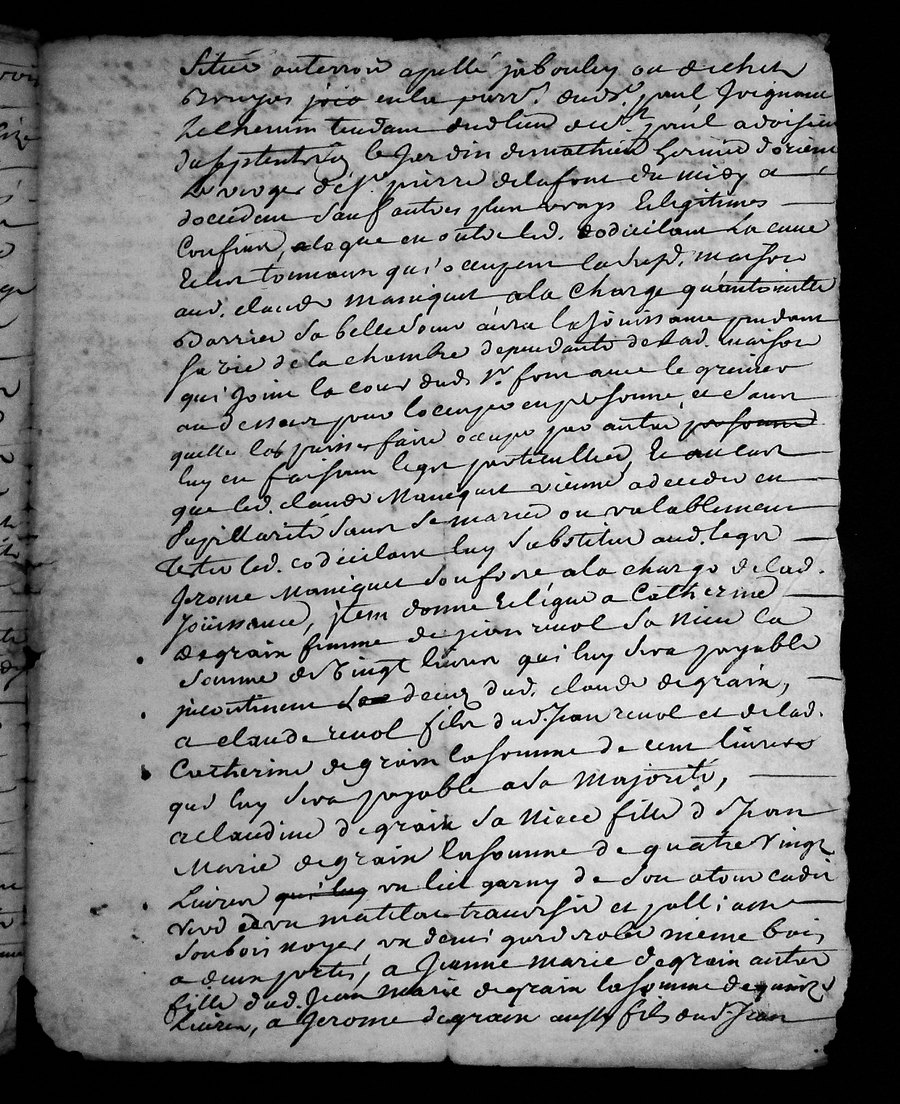 Situé au terroir apellé jabouley ou de chez
en la parr.e dud. paul joignant
le chemin tendant dud. lieu de st paul a
le jardin de mathieu d'orient
le verger de sr pierre delafont du midy a
occident sauf autres plus vrays & legitimes
Confins, plegue en outre led. codicilant la cuve
& les tonneaux qui occupent lasusd. maison
aud. claude maniquet ala charge qu'antoinette
Barrier sa belle soeur aura la joüissance pendant
sa vie de la chambre dependante de lad. maison
qui joint la cour dud sr. font avec le grenier
au dessus pour l'occuper en personne et sans
quelle les puisse faire occuper par autre personne
luy en faisant legat particullier, Et au cas
que led. claude Maniquet vienne a deceder en
Pupillarité sans se marier ou valablement
Tester led. codicilant luy substitue aud. legat
Jerome Maniquet son frere ala charge de lad.
Joüissance, jtem donne & legue a Catherine
degrain femme de jean revol sa niece La
somme de Vingt livres qui luy sera payable
jncontinent son deces dud. claude degrain,
a claude revol fils dud. Jean revol et de lad.
Catherine degrain lasomme de cent livres
qui luy sera payable asa Majorité,
a claudine degrain sa niece fille de Jean
Marie degrain lasomme de quatre Vingt
Livres qui luy un lict garny de son atour cadis
verd un matelas traversier et
Soubois noyer un demi garderobe même bois
a deux portes, a Jeanne marie degrain autre
fille dud. Jean marie degrain lasomme de quinze
Livres, a Jerome degrain aussy fils dud. Jean